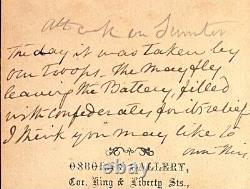 Attack on Sumter
The day it was taken by
our troops. The May fly
leaving the Battery, filled
with confederates for its relief
I think you may like to
own this
OSBORN'S GALLERY,
Cor. King & Liberty Sts.,